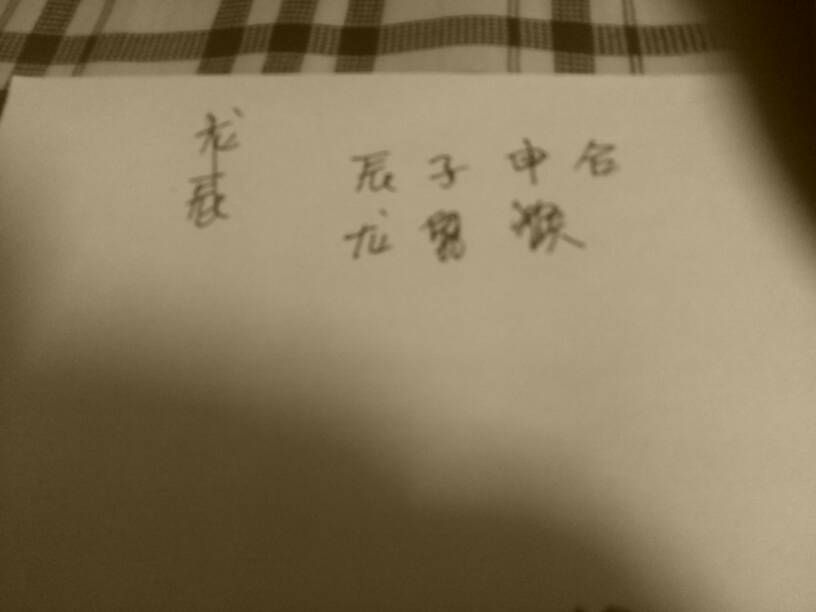 龙
辰
辰子申合
龙鼠猴